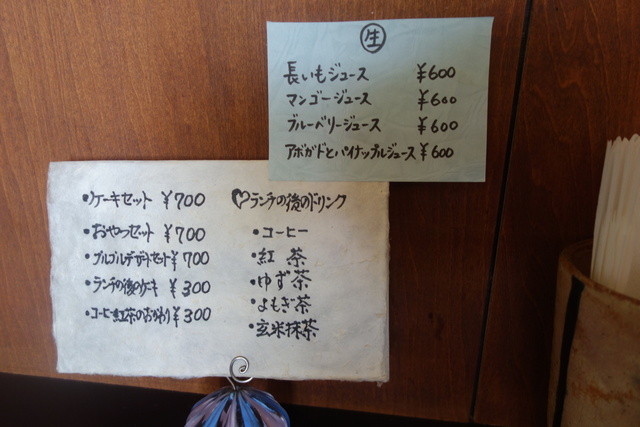 生
長いもジュース ¥600
マンゴージュース ¥600
ブルーベリージュース ¥600
アボガドとパイナップルジュース ¥600
・ケーキセット ¥700
・おやつセット ¥700
・ブルゴルデザートセット ¥700
・ランチの後のケーキ ¥300
・コーヒー紅茶のおかわり ¥300
♡ランチの後のドリンク
・コーヒー
・紅茶
・ゆず茶
・よもぎ茶
・玄米抹茶